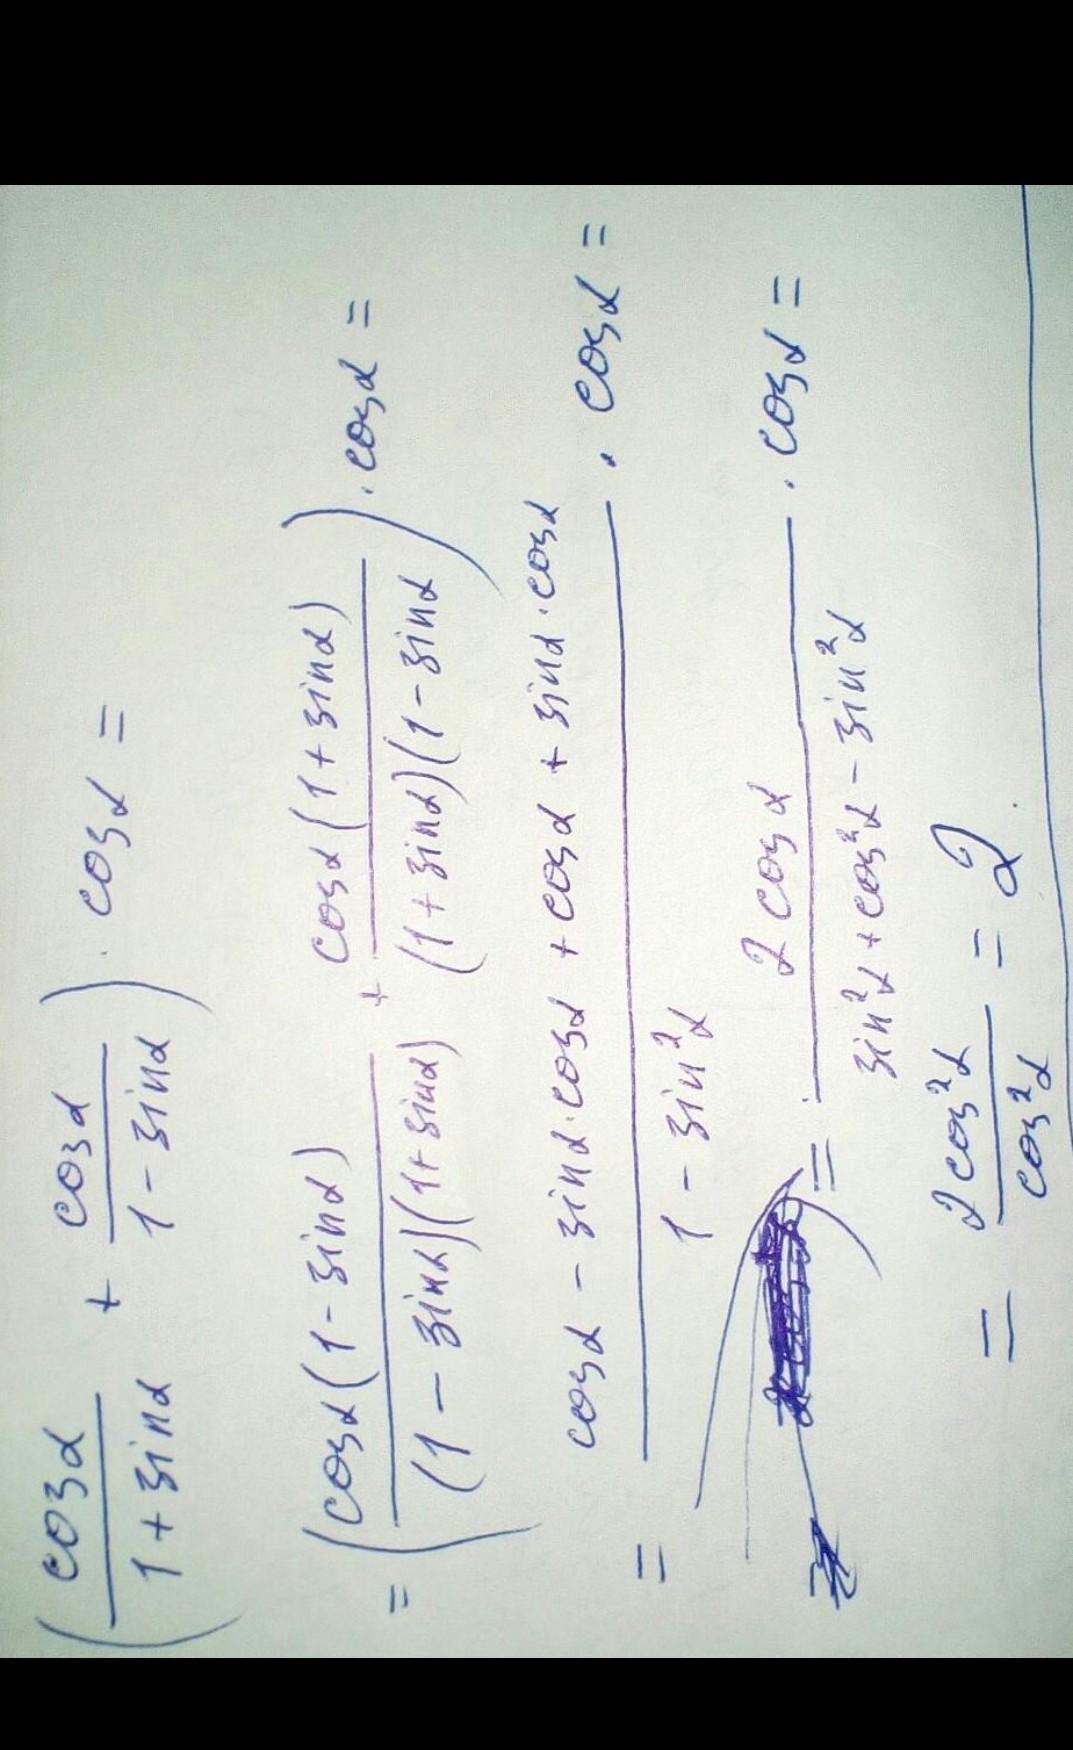 (cosα/(1+sinα) + cosα/(1-sinα)) · cosα =
= (cosα(1-sinα)/((1-sinα)(1+sinα)) + cosα(1+sinα)/((1+sinα)(1-sinα))) · cosα =
= (cosα - sinα·cosα + cosα + sinα·cosα)/(1 - sin²α) · cosα =
= 2cosα/(sin²α + cos²α - sin²α) · cosα =
= 2cos²α/cos²α = 2.